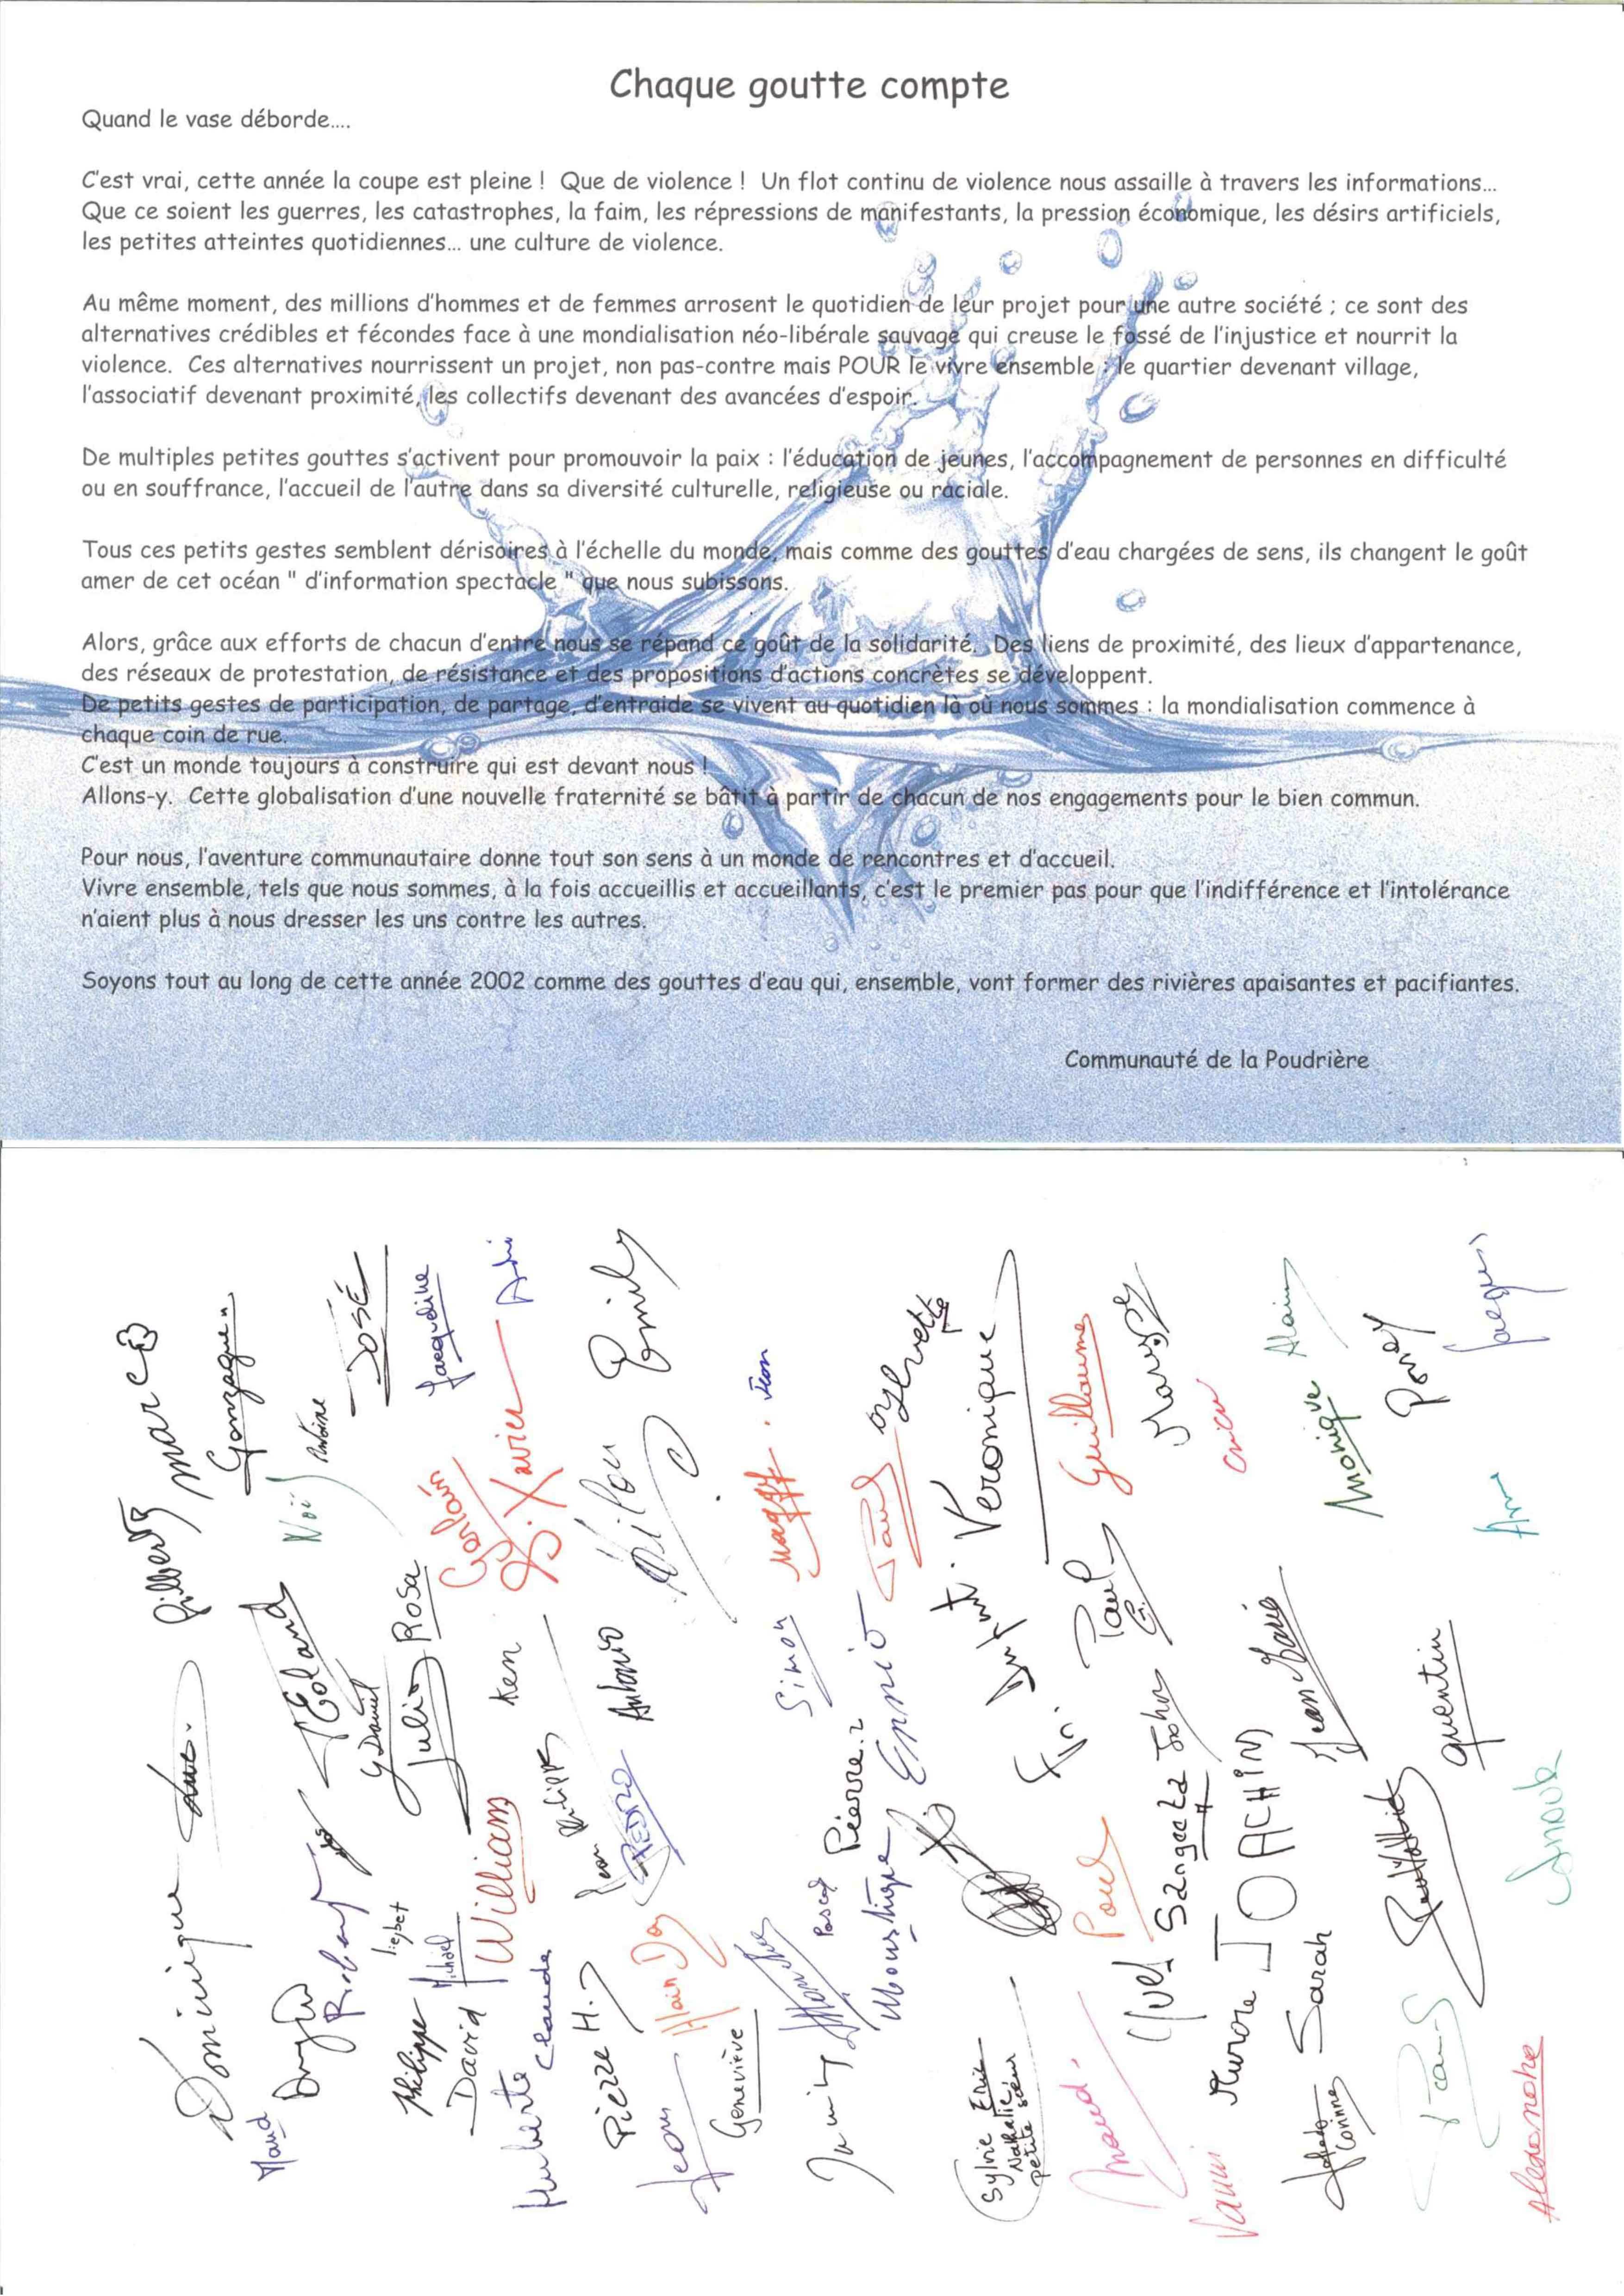 Chaque goutte compte
Quand le vase déborde....
C'est vrai, cette année la coupe est pleine ! Que de violence ! Un flot continu de violence nous assaille à travers les informations...
Que ce soient les guerres, les catastrophes, la faim, les répressions de manifestants, la pression économique, les désirs artificiels,
les petites atteintes quotidiennes... une culture de violence.
Au même moment, des millions d'hommes et de femmes arrosent le quotidien de leur projet pour une autre société ; ce sont des
alternatives crédibles et fécondes face à une mondialisation néo-libérale sauvage qui creuse le fossé de l'injustice et nourrit la
violence. Ces alternatives nourrissent un projet, non pas-contre mais POUR le vivre ensemble : le quartier devenant village,
l'associatif devenant proximité, les collectifs devenant des avancées d'espoir.
De multiples petites gouttes s'activent pour promouvoir la paix : l'éducation de jeunes, l'accompagnement de personnes en difficulté
ou en souffrance, l'accueil de l'autre dans sa diversité culturelle, religieuse ou raciale.
Tous ces petits gestes semblent dérisoires à l'échelle du monde, mais comme des gouttes d'eau chargées de sens, ils changent le goût
amer de cet océan " d'information spectacle " que nous subissons.
Alors, grâce aux efforts de chacun d'entre nous se répand ce goût de la solidarité. Des liens de proximité, des lieux d'appartenance,
des réseaux de protestation, de résistance et des propositions d'actions concrètes se développent.
De petits gestes de participation, de partage, d'entraide se vivent au quotidien là où nous sommes : la mondialisation commence à
chaque coin de rue.
C'est un monde toujours à construire qui est devant nous !
Allons-y. Cette globalisation d'une nouvelle fraternité se bâtit à partir de chacun de nos engagements pour le bien commun.
Pour nous, l'aventure communautaire donne tout son sens à un monde de rencontres et d'accueil.
Vivre ensemble, tels que nous sommes, à la fois accueillis et accueillants, c'est le premier pas pour que l'indifférence et l'intolérance
n'aient plus à nous dresser les uns contre les autres.
Soyons tout au long de cette année 2002 comme des gouttes d'eau qui, ensemble, vont former des rivières apaisantes et pacifiantes.
Communauté de la Poudrière
Dominique
Luc
Gilbert
Marc
Maud
Gonzague
Noël
Antoine
JOSÉ
Liesbet
Y Daniel
Julio
Rosa
Jacqueline
Philippe
Michael
David
William
Ken
Xavier
Huberte
Claude
Philippe
Emily
Pierre H.
Jean
PEDRO
Antonio
Jean
Alain
Geneviève
Simon
Maggy
Jean
Pascal
Pierre.2
Moustique
Ennio
Paul
Véronique
Sylvie
Eric
Nathalie
petite sœur
Maud
Paul
Paul
G.
Guillaume
Yves
Sangeeta
John
Vanni
Aurore
JOACHIN
Jean Marie
Alain
Monique
Corinne
Sarah
Poney
Quentin
Anne
Jacques
Anouk
Alexandre